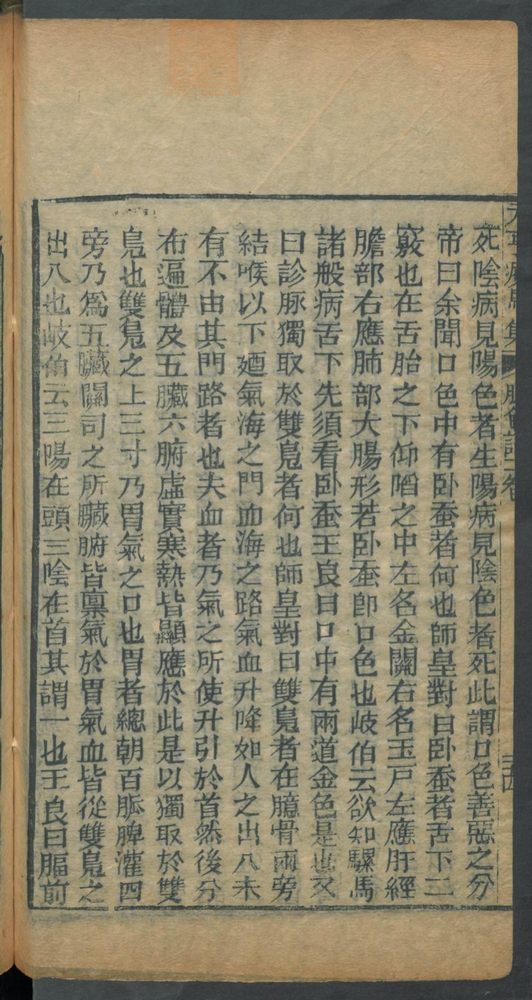 元亨療馬集 脉色論 卷 三四
死陰病見陽色者生陽病見陰色者死此謂口色善惡之分
帝曰余聞口色中有卧蚕者何也師皇對曰卧蚕者舌下二
竅也在舌胎之下仰陷之中左名金關右名玉戶左應肝經
膽部右應肺部大腸形若卧蚕卽口色也岐伯云欲知騾馬
諸般病舌下先須看卧蚕王良曰口中有兩道金色是也又
曰診脉獨取於雙鳬者何也師皇對曰雙鳬者在臆骨兩旁
結喉以下廻氣海之門血海之路氣血升降如人之出入未
有不由其門路者也夫血者乃氣之所使升引於首然後分
布遍體及五臟六腑虛實寒熱皆顯應於此是以獨取於雙
鳬也雙鳬之上三寸乃胃氣之口也胃者總朝百脈脾灌四
旁乃爲五臟關司之所臟腑皆禀氣於胃氣血皆從雙鳬之
出入也岐伯云三陽在頭三陰在首其謂一也王良曰膃前